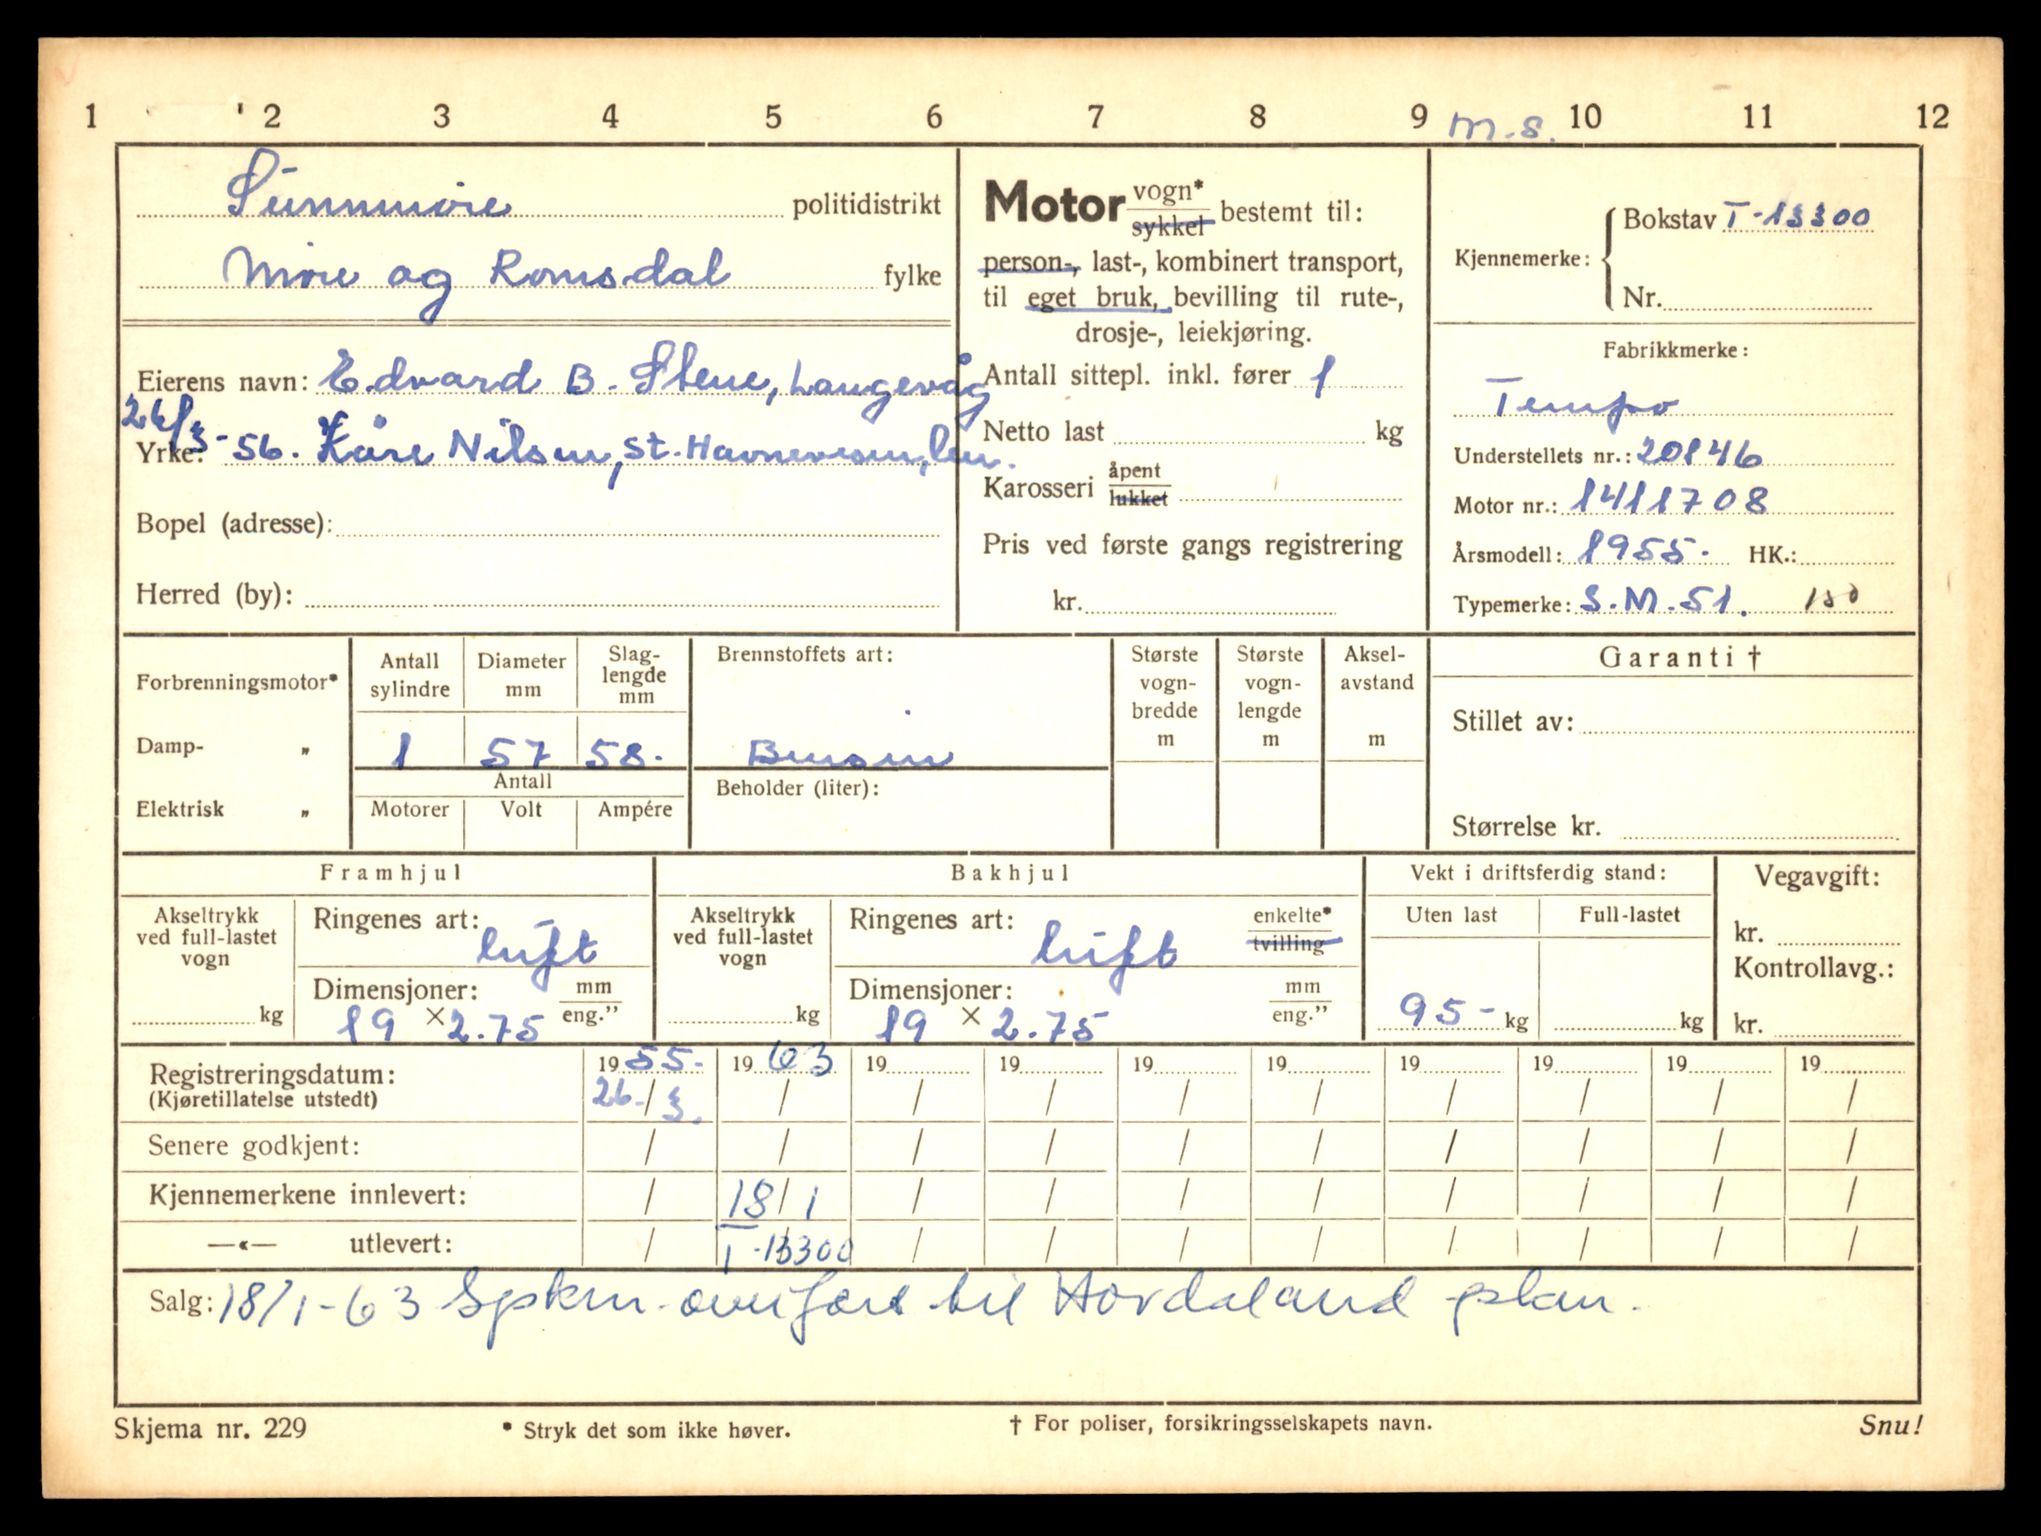 1 2 3 4 5 6 7 8 9 m.s. 10 11 12
Sunnmøre politidistrikt
Møre og Romsdal fylke
Eierens navn: Edvard B. Stene, Langevåg
26/3-56. Kåre Nilsen, St. Havnevesen,
Yrke:
Bopel (adresse):
Herred (by):
Motor vogn* sykkel bestemt til:
person-, last-, kombinert transport,
til eget bruk, bevilling til rute-,
drosje-, leiekjøring.
Antall sittepl. inkl. fører 1
Netto last kg
Karosseri åpent lukket
Pris ved første gangs registrering
kr.
Kjennemerke: Bokstav T-13300
Nr.
Fabrikkmerke:
Tempo
Understellets nr.: 20146
Motor nr.: 1411708
Årsmodell: 1955. HK.:
Typemerke: S.M.51. 150
Forbrenningsmotor*
Damp- „
Elektrisk „
Antall sylindre
Diameter mm
Slag-lengde mm
1 57 58.
Antall
Motorer Volt Ampére
Brennstoffets art:
Bensin
Beholder (liter):
Største vogn-bredde m
Største vogn-lengde m
Aksel-avstand m
Garanti †
Stillet av:
Størrelse kr.
Framhjul
Akseltrykk ved full-lastet vogn
kg
Ringenes art: luft
Dimensjoner: mm eng.”
19 × 2.75
Bakhjul
Akseltrykk ved full-lastet vogn
kg
Ringenes art: luft enkelte* tvilling
Dimensjoner: mm eng.”
19 × 2.75
Vekt i driftsferdig stand:
Uten last Full-lastet
95- kg kg
Vegavgift:
kr.
Kontrollavg.:
kr.
Registreringsdatum: 1955. 1963 19 19 19 19 19 19 19 19
(Kjøretillatelse utstedt) 26./3. / / / / / / / / /
Senere godkjent: / / / / / / / / / /
Kjennemerkene innlevert: / 18/1 / / / / / / / /
—«— utlevert: / T-13300 / / / / / / / /
Salg: 18/1-63 Spkm. overført til Hordaland
Skjema nr. 229 * Stryk det som ikke høver. † For poliser, forsikringsselskapets navn. Snu!